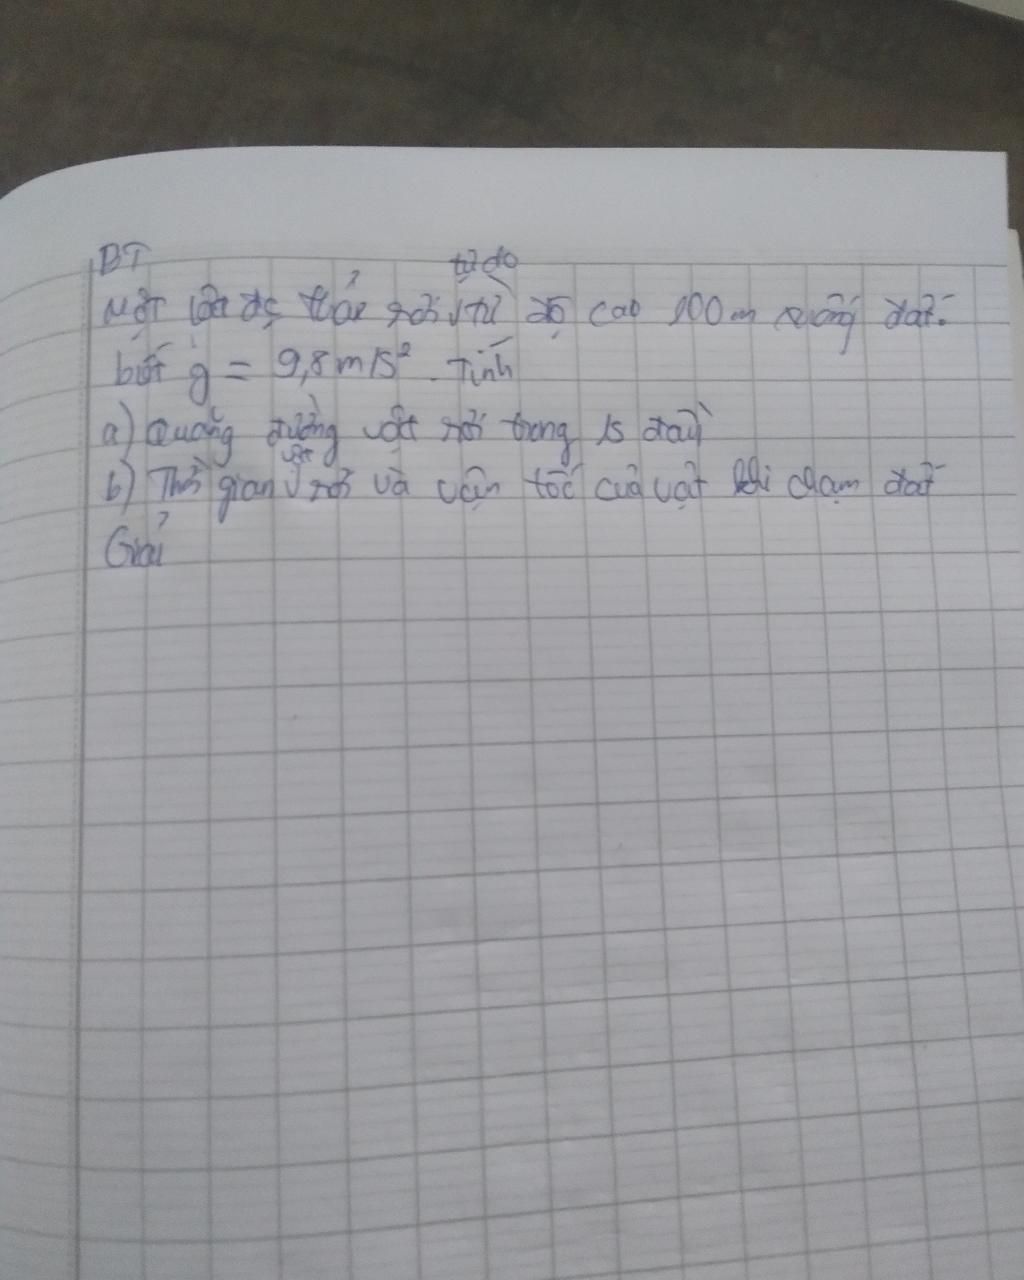 BT
tự do
Một vật đc thả rơi từ độ cao 100m xuống đất.
biết g = 9,8m/s². Tính
a) Quãng đường vật rơi trong 1s đầu
vật
b) Thời gian rơi và vận tốc của vật khi chạm đất
Giải